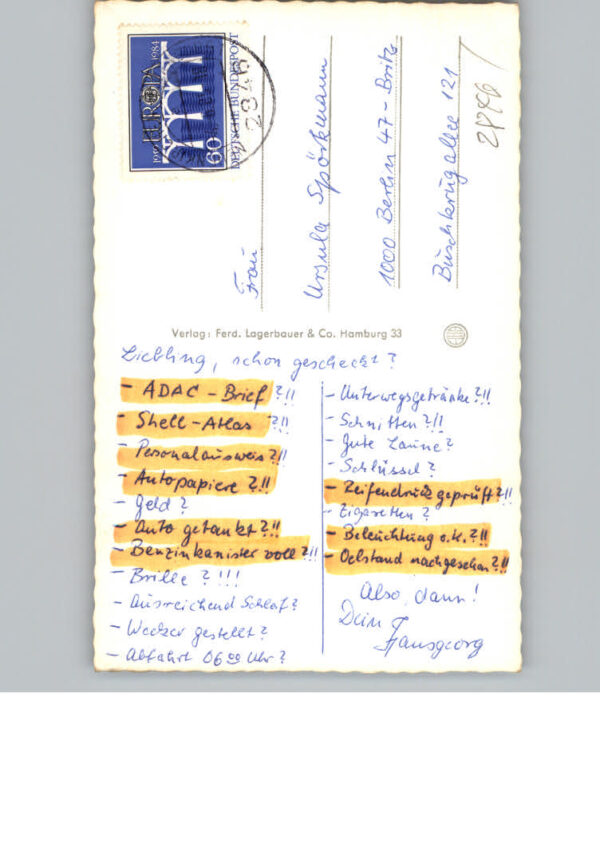 1959 EUROPA 1984
60 DEUTSCHE BUNDESPOST
2846
Frau
Ursula Spörkmann
1000 Berlin 47 - Britz
Buschkrugallee 121
Verlag: Ferd. Lagerbauer & Co. Hamburg 33
Liebling, schon gescheckt?
- ADAC - Brief ?!!
- Shell - Atlas ?!!
- Personalausweis ?!!
- Autopapiere ?!!
- Geld ?
- Auto getankt ?!!
- Benzinkanister voll ?!!
- Brille ?!!!
- Ausreichend Schlaf?
- Wecker gestellt?
- Abfahrt 06 00 Uhr ?
- Unterwegsgetränke ?!!
- Schnitten ?!!
- Gute Laune ?
- Schlüssel ?
- Reifendruck geprüft ?!!
- Zigaretten ?
- Beleuchtung o.k. ?!!
- Oelstand nachgesehen ?!!
Also, dann!
Dein
Hansgeorg